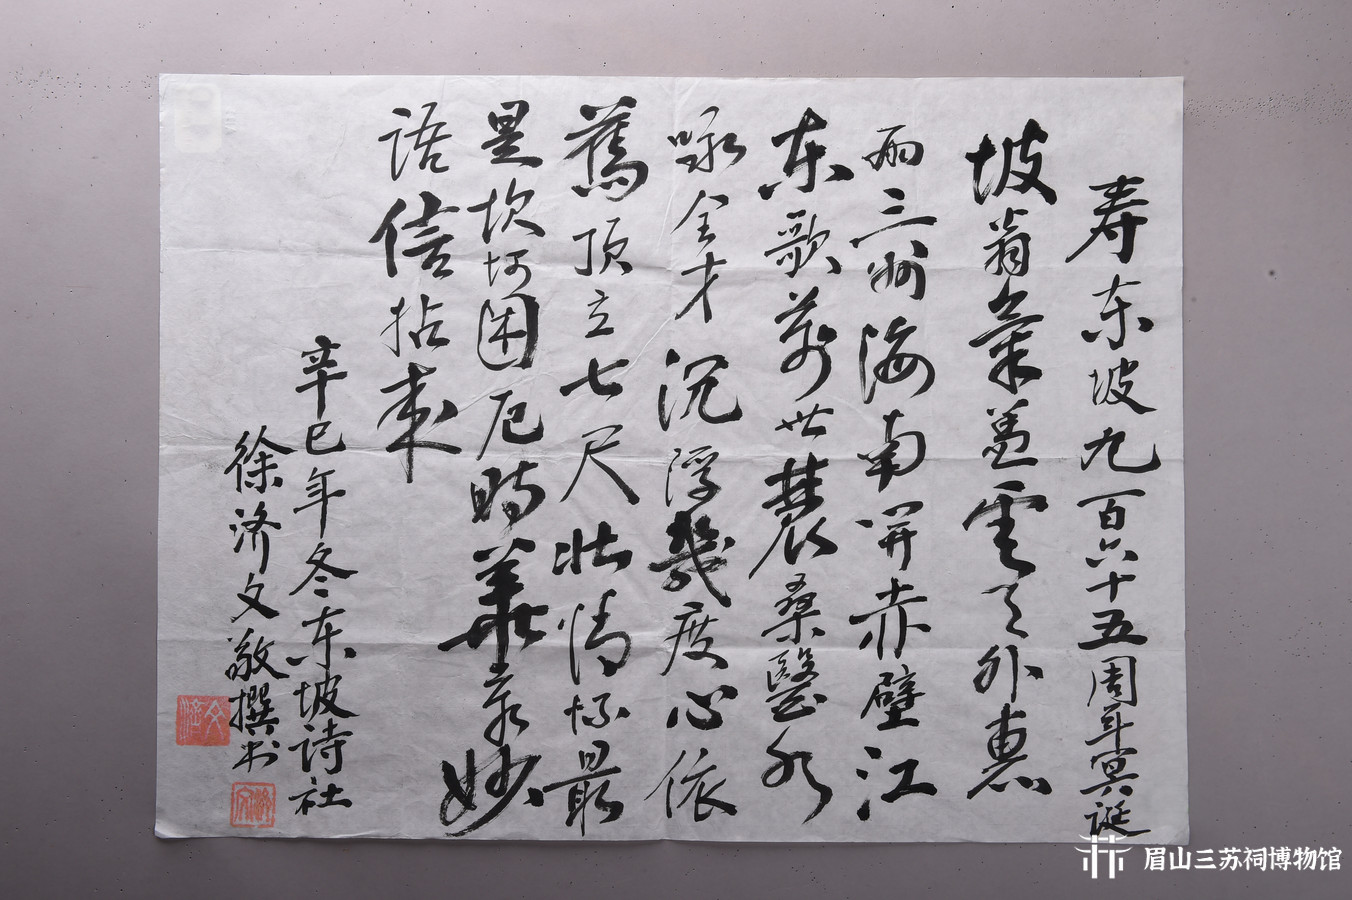 寿东坡九百六十五周年冥诞
坡翁氣盖雲天外惠
雨三州海南開赤壁江
东歌萬世農桑醫水
咏全才沉浮幾度心依
舊顶立七尺壮情怀最
是坎坷困厄时華章妙
语信拈来
辛巳年冬东坡诗社
徐济文敬撰书
眉山三苏祠博物馆